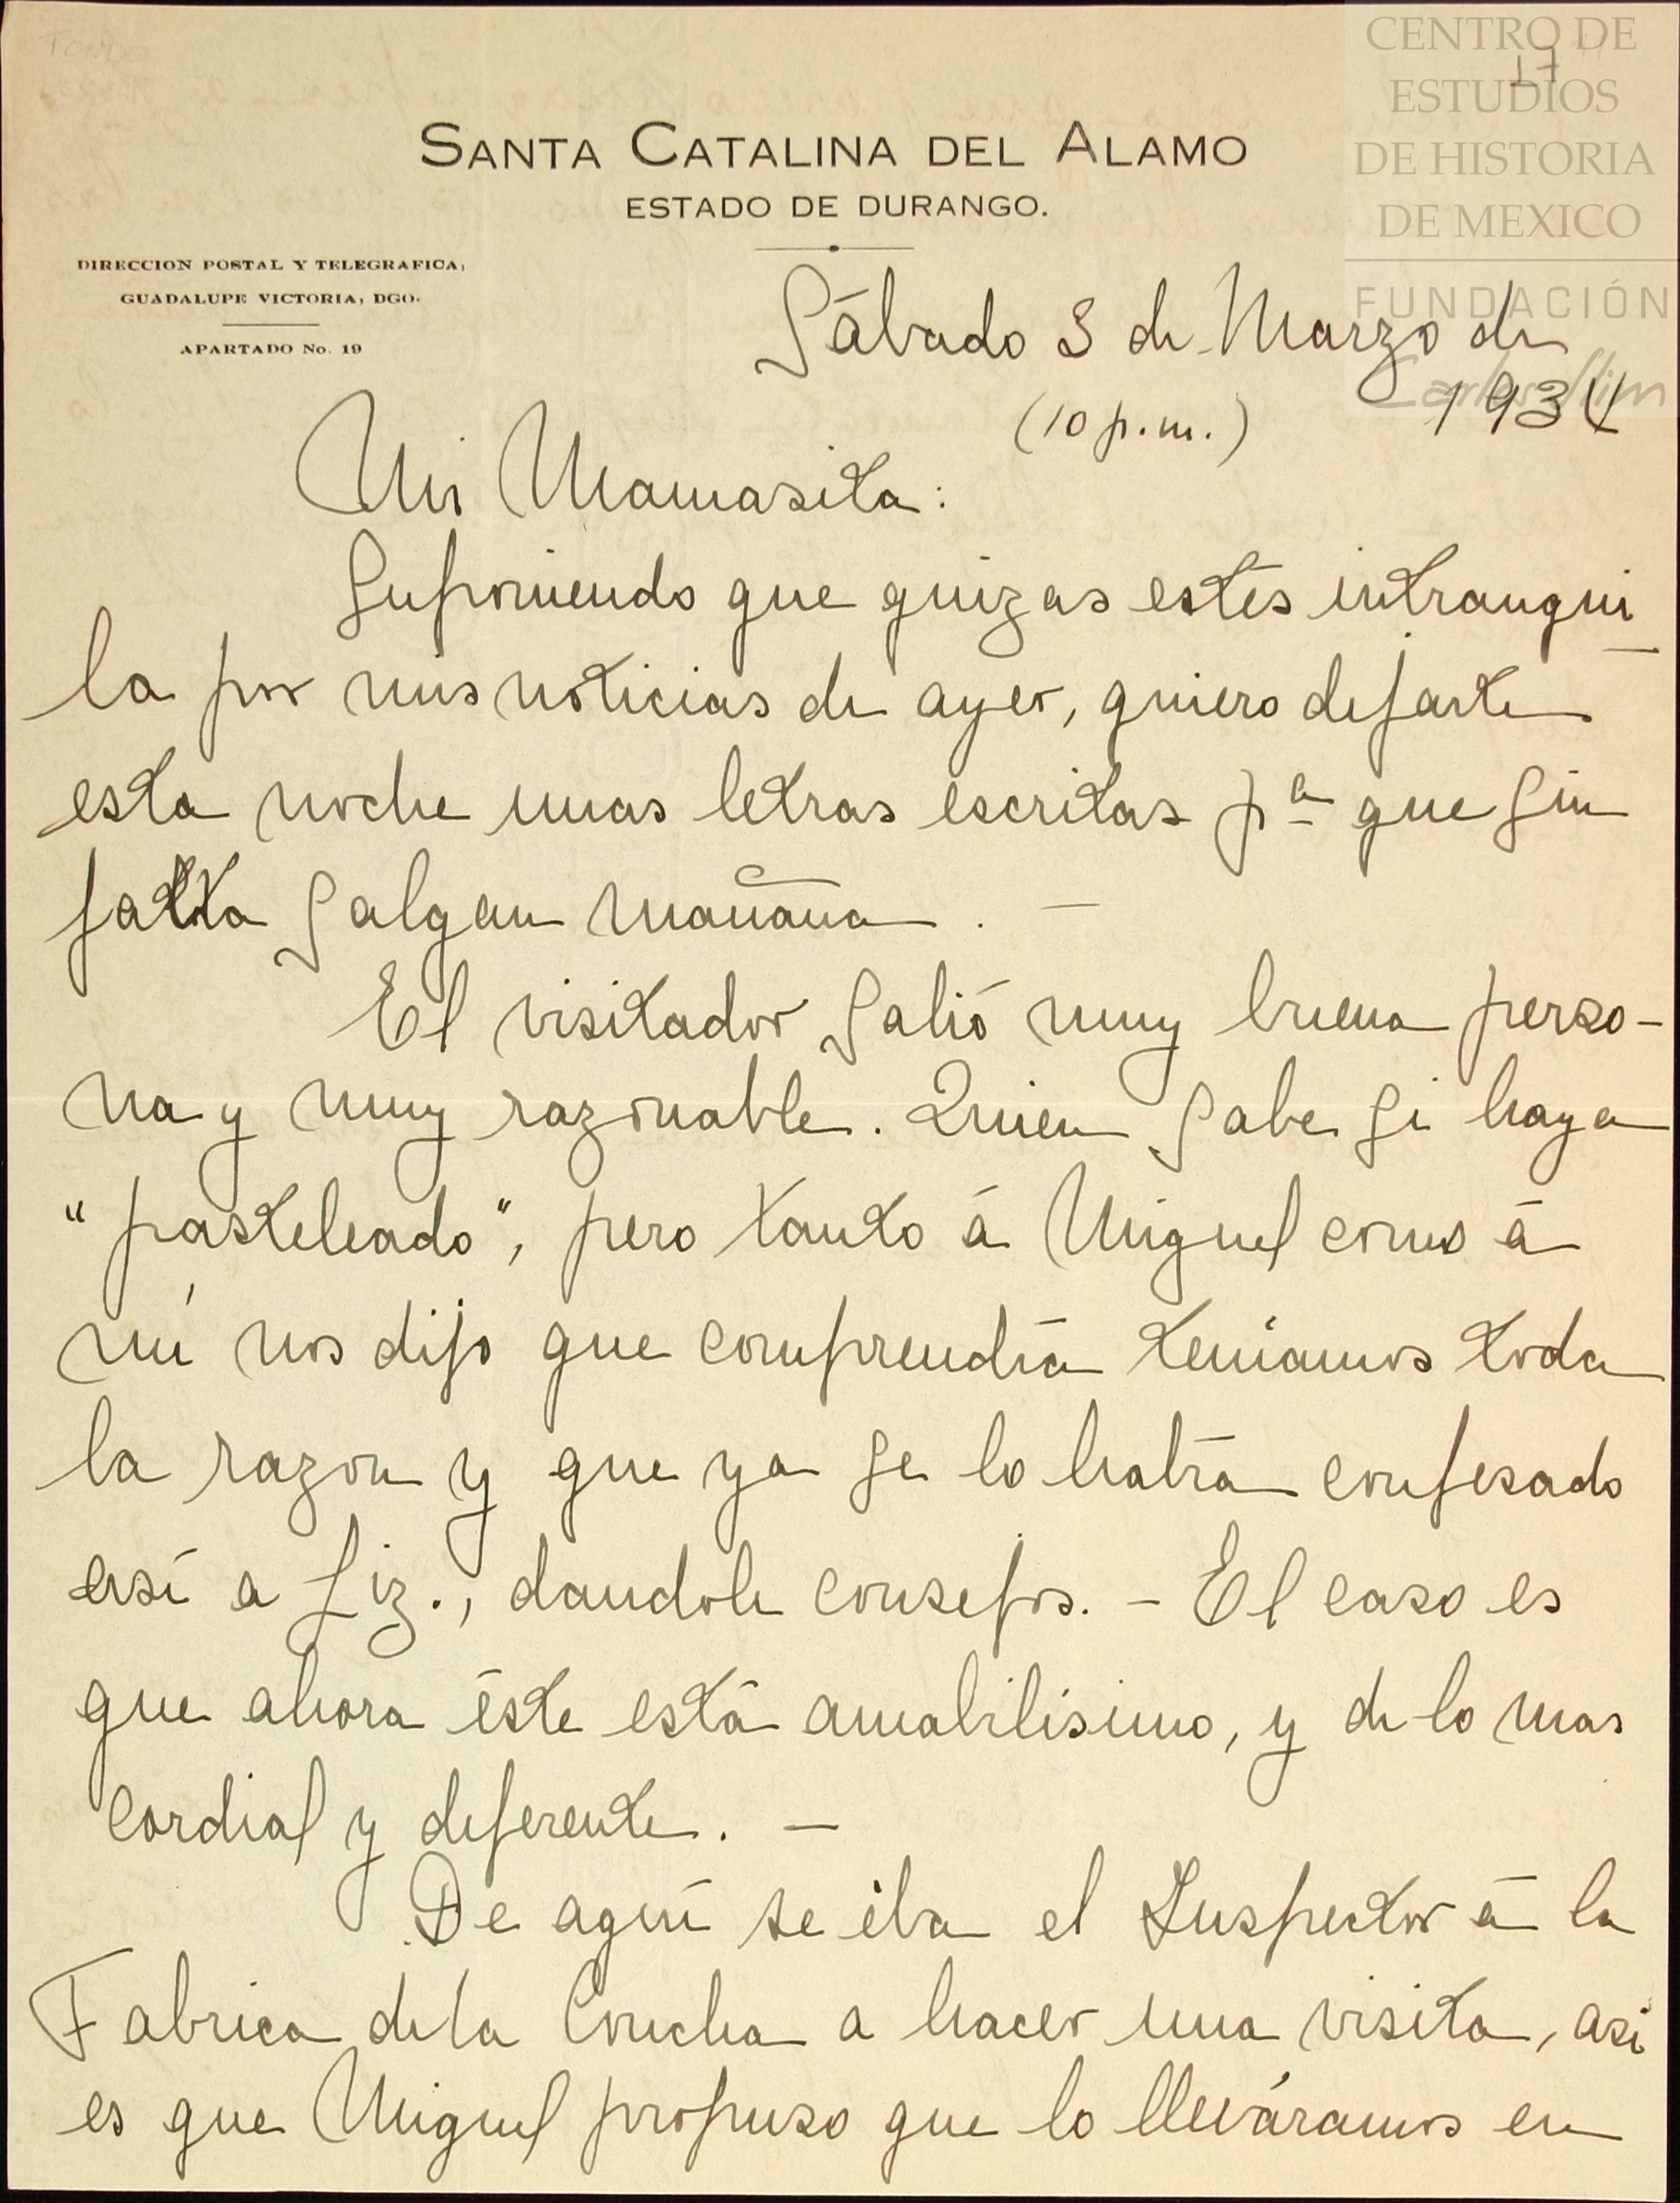 CENTRO DE
ESTUDIOS
DE HISTORIA
DE MEXICO
FUNDACIÓN
Carlos Slim
17
SANTA CATALINA DEL ALAMO
ESTADO DE DURANGO.
DIRECCION POSTAL Y TELEGRAFICA,
GUADALUPE VICTORIA, DGO.
APARTADO No. 19
Sábado 3 de Marzo de
1934
(10 p.m.)
Mi Mamasita:
Suponiendo que quizas estés intranqui
la por mis noticias de ayer, quiero dejarte
esta noche unas letras escritas pª que sin
falta salgan mañana. —
El visitador salió muy buena perso-
na y muy razonable. Quien sabe si haya
"pasteleado", pero tanto á Miguel como á
mí nos dijo que comprendía teníamos toda
la razon y que ya se lo había confesado
así a Liz., dandole consejos. - El caso es
que ahora éste está amabilísimo, y de lo mas
cordial y deferente. —
De aquí se iba el Inspector á la
Fabrica de la Concha a hacer una visita, asi
es que Miguel propuso que lo lleváramos en